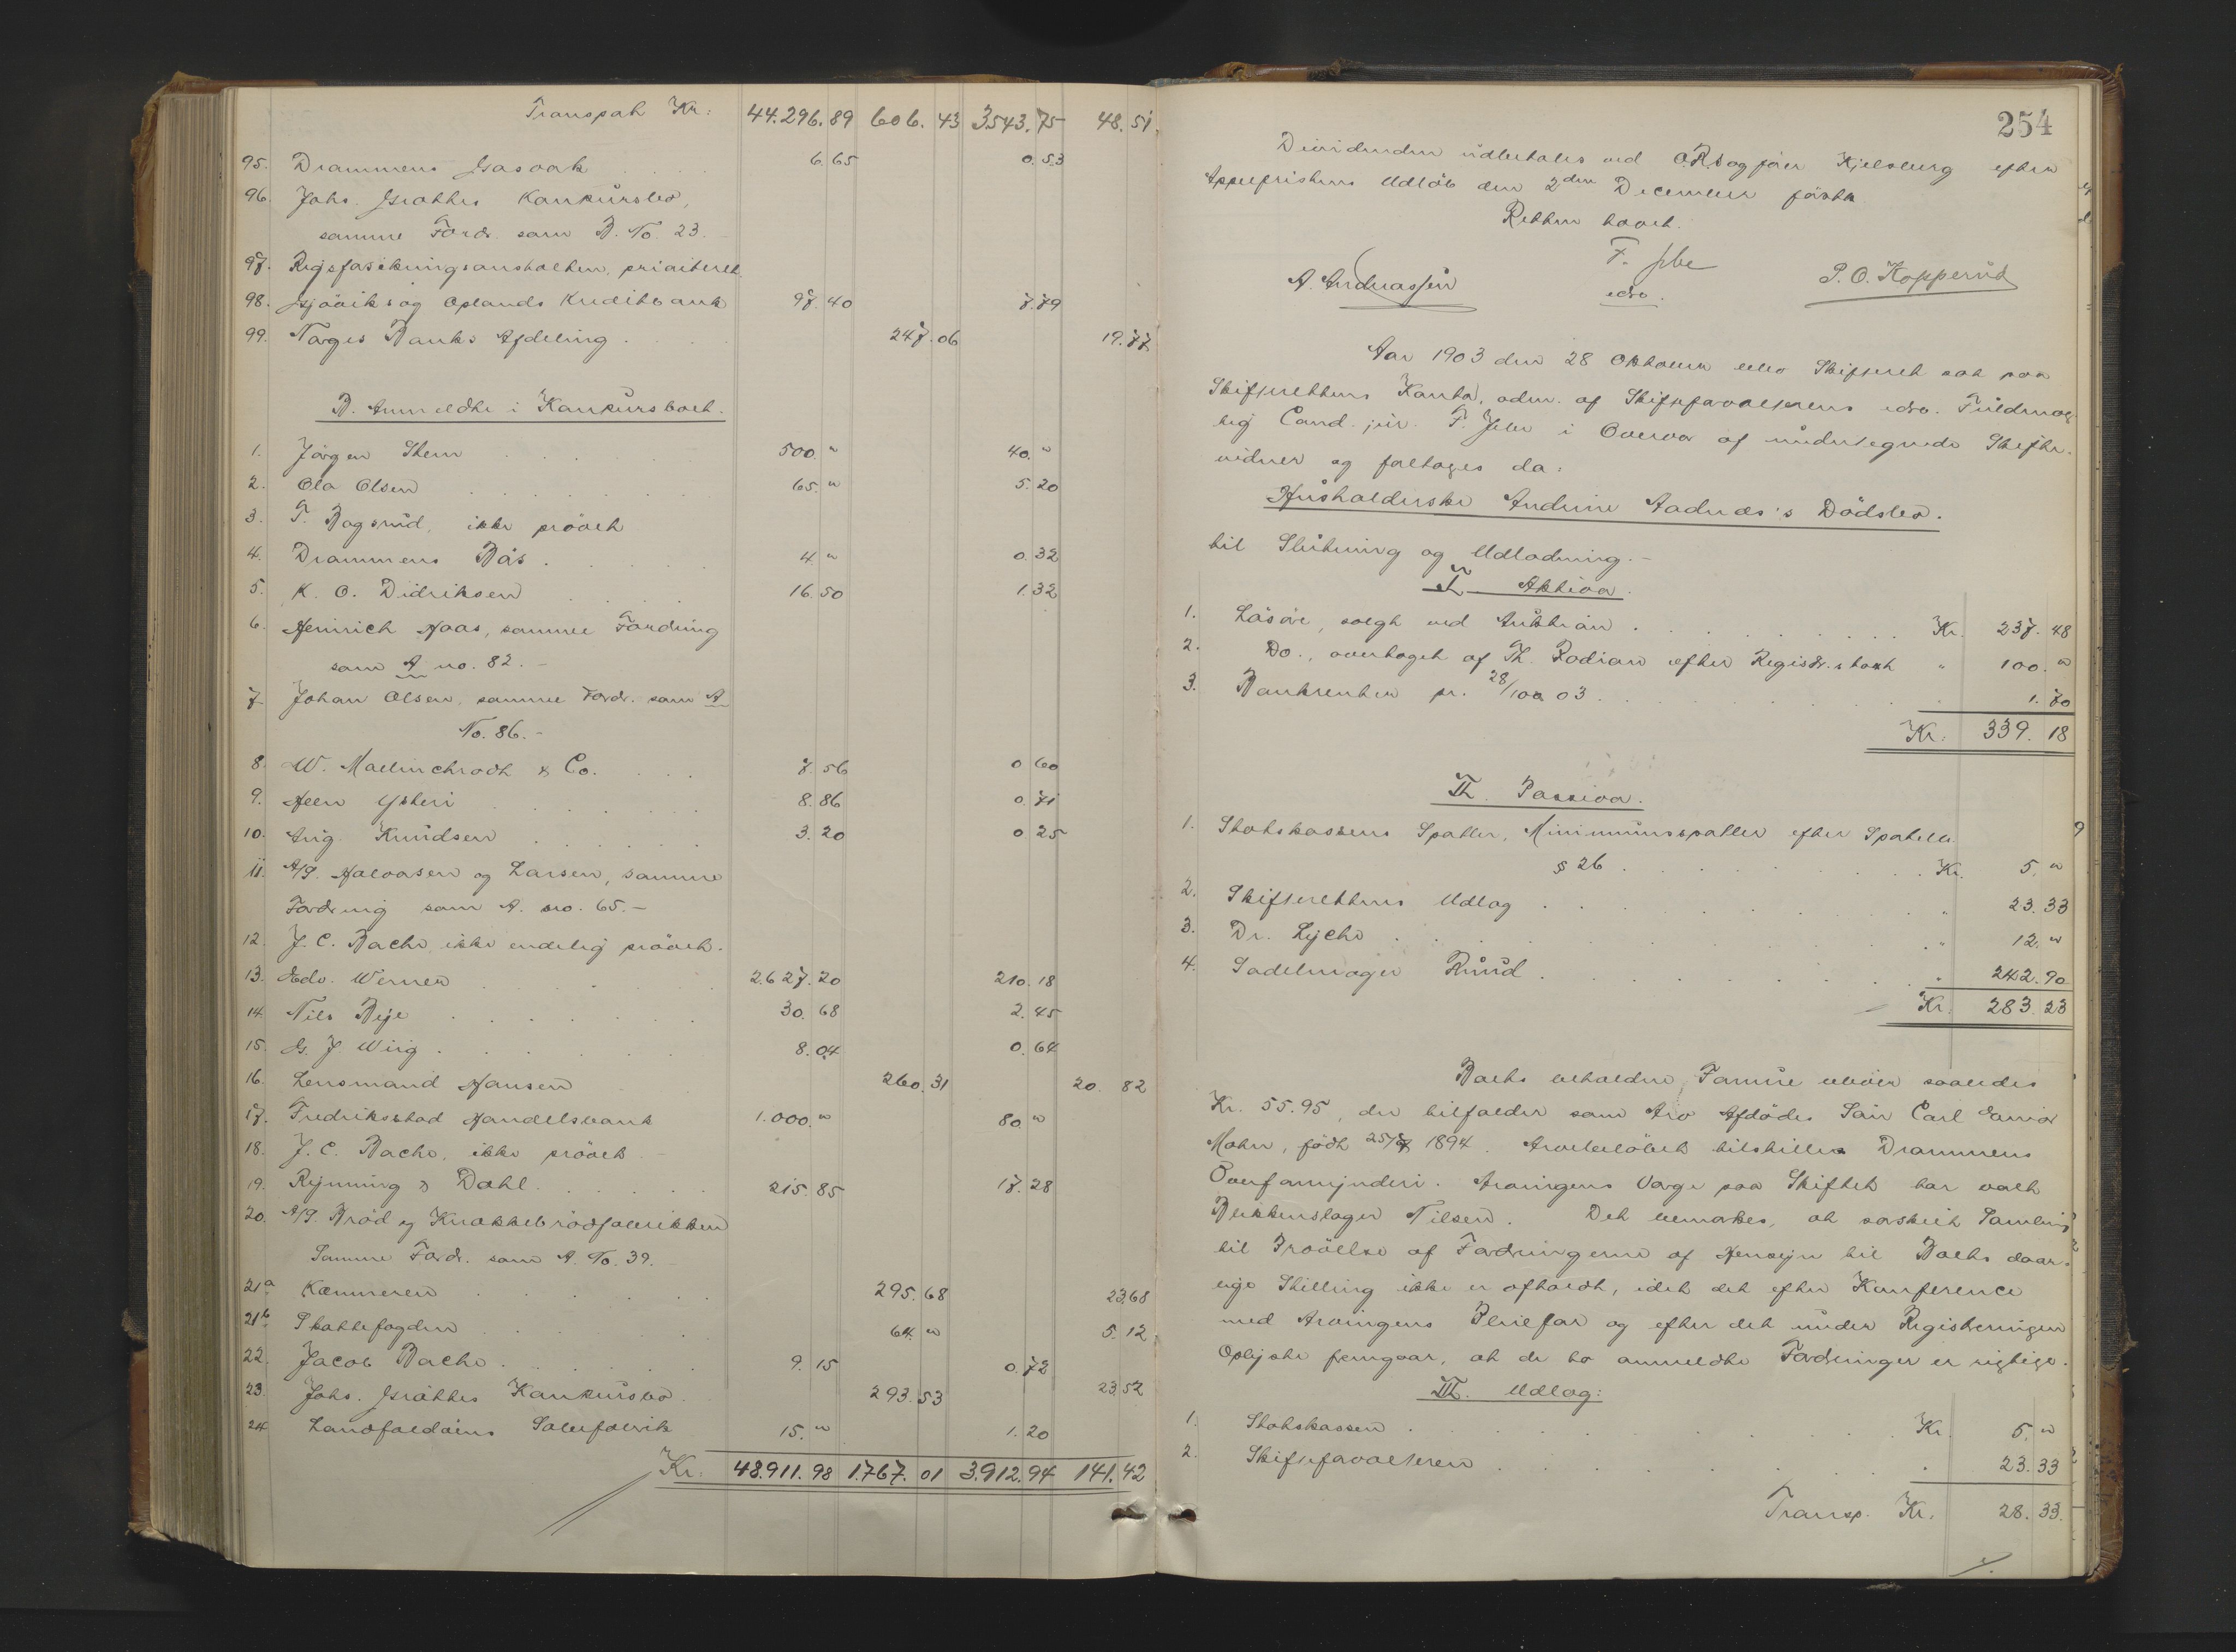 Transpart Kr: 44.296.89 606.43 3543.75 48.51.
95. Drammens Gasværk 6.65 0.53
96. Johs. Grøttes Konkursbo,
samme Fordr. som B. No. 23.
97. Rigsforsikringsanstalten, prioriteret
98. Gjøviks og Oplands Kreditbank 97.40 7.79
99. Norges Banks Afdeling 247.06 19.77
B. Anmeldte i Konkursboet.
1. Jørgen Steen 500." 40."
2. Ola Olsen 65." 5.20
3. T. Bagsrud, ikke prøvet
4. Drammens Bås 4." 0.32
5. K. O. Didriksen 16.50 1.32
6. Heinrich Haas, samme Fordring
som A no. 82.-
7. Johan Olsen, samme Fordr. som A
No. 86.-
8. W. Mallinchrodt & Co. 7.56 0.60
9. Heen Ysteri 8.86 0.71
10. Aug. Knudsen 3.20 0.25
11. A/S. Halvorsen og Larsen, samme
Fordring som A. no. 65.-
12. J. C. Bache, ikke endelig prøvet.
13. Edv. Werner 2.627.20 210.18
14. Nils Beje 30.68 2.45
15. G. J. Wiig 8.04 0.64
16. Lensmand Hansen 260.31 20.82
17. Fredrikstad Handelsbank 1.000." 80."
18. J. C. Bache, ikke prøvet -
19. Rynning & Dahl 215.85 17.28
20. A/S. Brød og Knækkebrødfabrikken
Samme Fordr. som A. No. 39.
21a Kæmneren 295.68 23.68
21b Skattefogden 64." 5.12
22. Jacob Bache 9.15 0.72
23. Johs. Grøttes Konkursbo 293.53 23.52
24 Landfaldøiens Sæbefabrik 15." 1.20
Kr. 48.911.98 1.767.01 3.912.94 141.42
254
Dividenden udbetales ved O.R.sagfører Kjelsberg efter
Appelfristens Udløb den 2den December førstk.
Retten hævet.
F. Ibe
A. Andreassen edv. P. O. Kopperud
Aar 1903 den 28 Oktober blev Skifteret sat paa
Skifterettens Kontor, adm. af Skifteforvalterens edsv. Fuldmæg
tig Cand. jur. F. Ibe i Overvær af undertegnede Skifte-
vidner og foretoges da:
Husholderske Andrine Aadnæs's Dødsbo.
til Slutning og Udlodning.-
I Aktiva.
1. Løsøre, solgt ved Auktion Kr. 237.48
2. Do., overtaget af Th. Rodian efter Registr. takst " 100."
3. Bankrenter pr. 28/10 03 1.70
Kr. 339.18
II. Passiva.
1. Statskassens Sportler, Minimumssportler efter Sportell.
§ 26 Kr. 5."
2. Skifterettens Udlæg " 23.33
3. Dr. Lyche " 12."
4. Sadelmager Ruud " 242.90
Kr. 283.23
Boets beholdne Formue bliver saaledes
Kr. 55.95, der tilfalder som Arv Afdødes Søn Carl Einar
Mohn, født 25/8 1894. Arvebeløbet tilstilles Drammens
Overformynderi. Arvingens Værge paa Skiftet har været
Blikkenslager Nilsen. Det bemærkes, at særskilt Samling
til Prøvelse af Fordringerne af Hensyn til Boets daar-
lige Stilling ikke er afholdt, idet det efter Konference
med Arvingens Pleiefar og efter det under Registreringen
Oplyste fremgaar, at de to anmeldte Fordringer er rigtige.
III. Udlæg:
1. Statskassen Kr. 5."
2. Skifteforvalteren 23.33
Transp. Kr. 28.33.